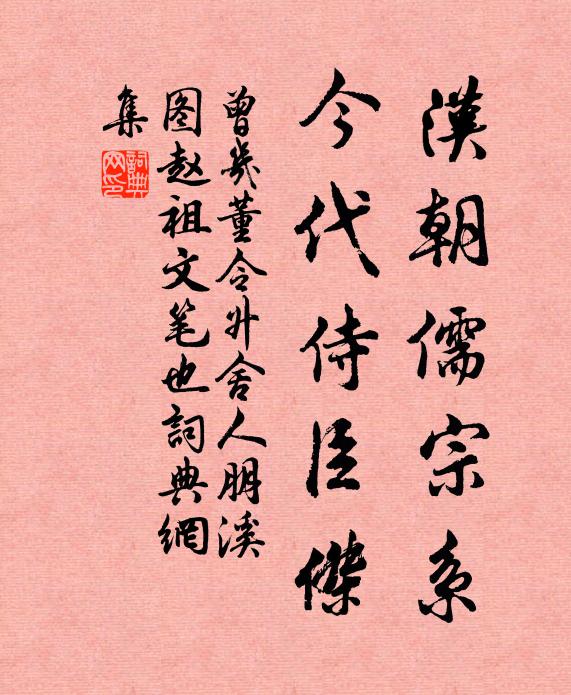 漢朝儒宗系
今代侍臣傑
曾幾董令升舍人朋溪
图赵祖文笔也詞典網
集
詞典
网印